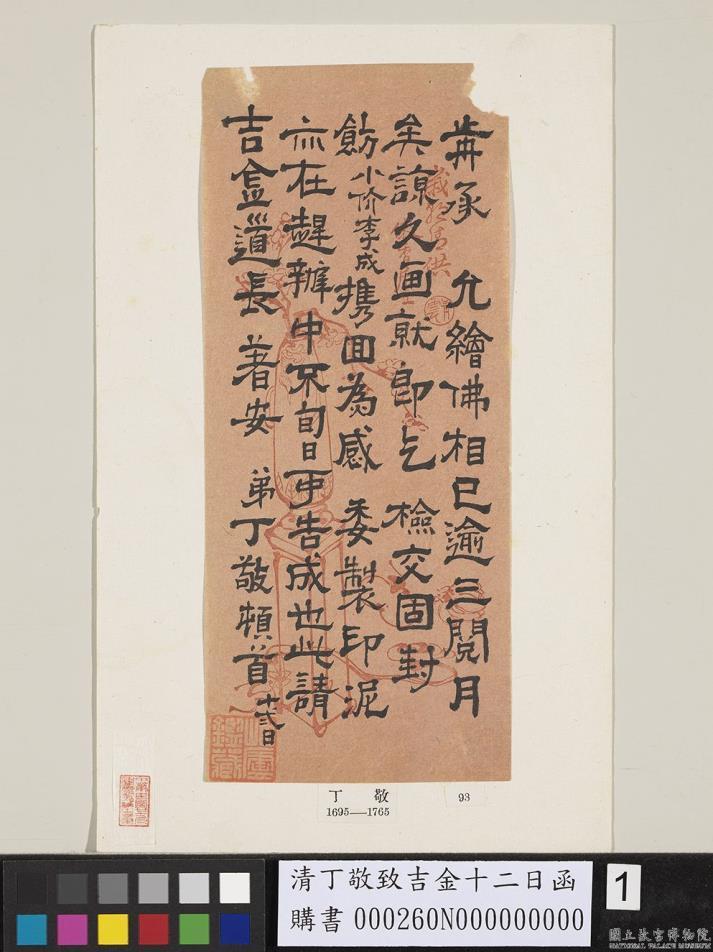 歬承　允繪佛相已逾三閱月
矣諒久画就即乞　檢交固封
飭小价李成携回為感　委製印泥
亦在趕辦中不旬日可告成也此請
吉金道長　著安　弟丁敬頓首　十二日
歲朝清供
丁　敬
1695—1765
93
清丁敬致吉金十二日函
購書 000260N000000000
1
國立故宮博物院
NATIONAL PALACE MUSEUM